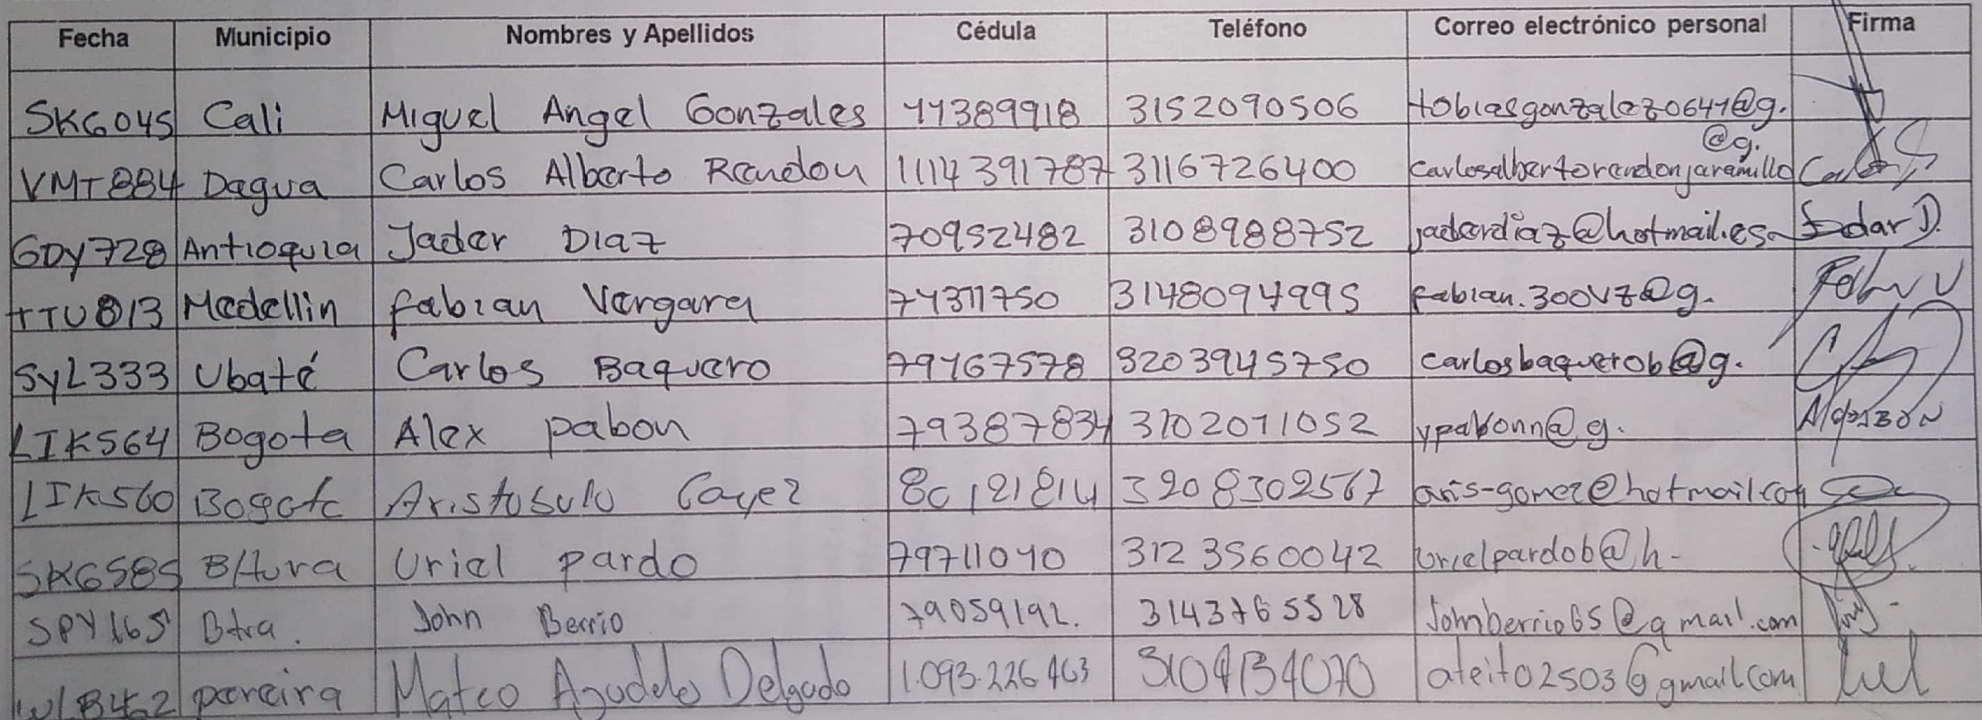 Fecha Municipio Nombres y Apellidos Cédula Teléfono Correo electrónico personal Firma
SKG045 Cali Miguel Angel Gonzales 11389918 3152090506 tobiasgonzalez0641@g.
@g.
VMT884 Dagua Carlos Alberto Rendon 1114391787 3116726400 carlosalbertorendonjaramillo
GDY728 Antioquia Jader Diaz 70952482 3108988752 jaderdiaz@hotmail.es
TTU813 Medellin fabian Vergara 74371750 3148094995 fabian.300vz@g.
SYL333 Ubaté Carlos Baquero 79167578 3203945750 carlosbaquerob@g.
LIK564 Bogota Alex pabon 79387834 3102011052 ypabonn@g.
LIK560 Bogota Aristobulo 80121814 3208302567 aris-gomez@hotmail.com
SKG585 B/tura Uriel pardo 79711040 3123560042 urielpardob@h-
SPY165 Btra. John Berrio 79059192. 3143765528 Johnberrio65@gmail.com
WLB462 pereira Mateo Agudelo Delgado 1.093.226463 3104134070 ateito2503@gmail.com